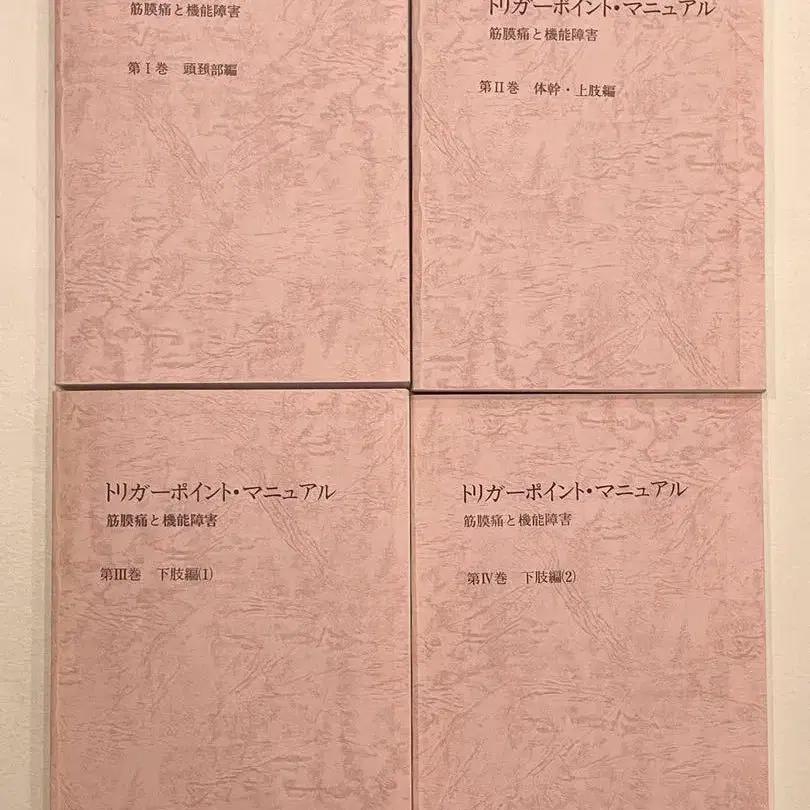 筋膜痛と機能障害
第Ⅰ巻 頭頚部編
トリガーポイント・マニュアル
筋膜痛と機能障害
第Ⅱ巻 体幹・上肢編
トリガーポイント・マニュアル
筋膜痛と機能障害
第Ⅲ巻 下肢編(1)
トリガーポイント・マニュアル
筋膜痛と機能障害
第Ⅳ巻 下肢編(2)